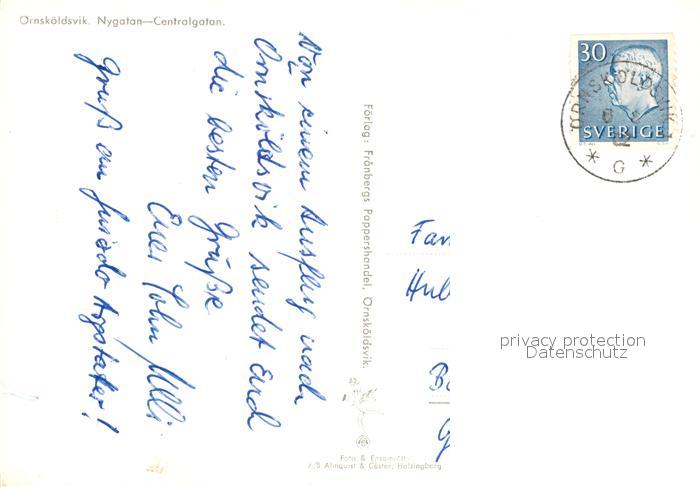 Örnsköldsvik. Nygatan—Centralgatan.
Von einem Ausflug nach
Örnsköldsvik sendet Euch
die besten Grüße
Euer Sohn Willi
Gruß an
Förlag: Frånbergs Pappershandel, Örnsköldsvik.
Foto & Ensamrätt:
A/B Almquist & Cöster, Helsingborg
30
SVERIGE
ÖRNSKÖLDSVIK
* G *
Fam
Hul
privacy protection
Datenschutz